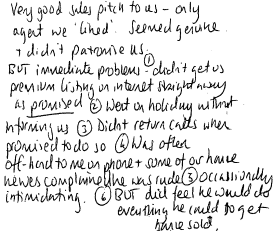 Very good sales pitch to us - only
agent we 'liked'. Seemed genuine
+ didn't patronise us.
BUT immediate problems - ① didn't get us
premium listing on internet straight away
as promised ② Went on holiday without
informing us ③ Didnt return calls when
promised to do so ④ Was often
off-hand to me on phone + some of our house
viewers complained he was rude ⑤ Occassionally
intimidating. ⑥ BUT did feel he would do
everything he could to get
house sold.